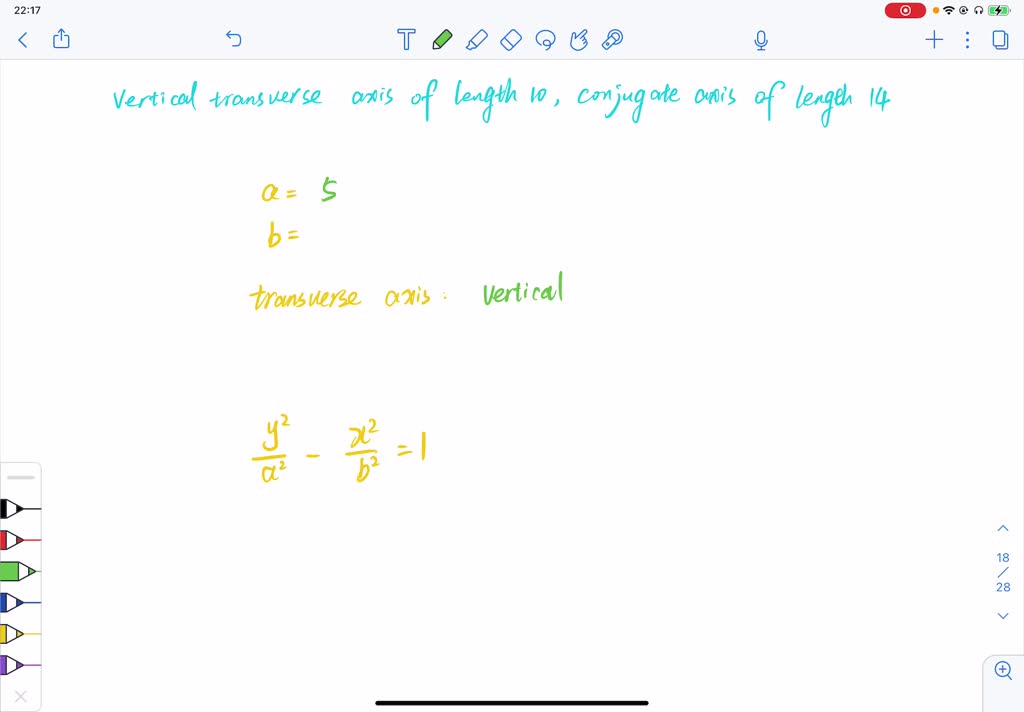 22:17
Vertical transverse axis of length 10, conjugate axis of length 14
a = 5
b =
transverse axis: vertical
y²/a² - x²/b² = 1
18
/
28